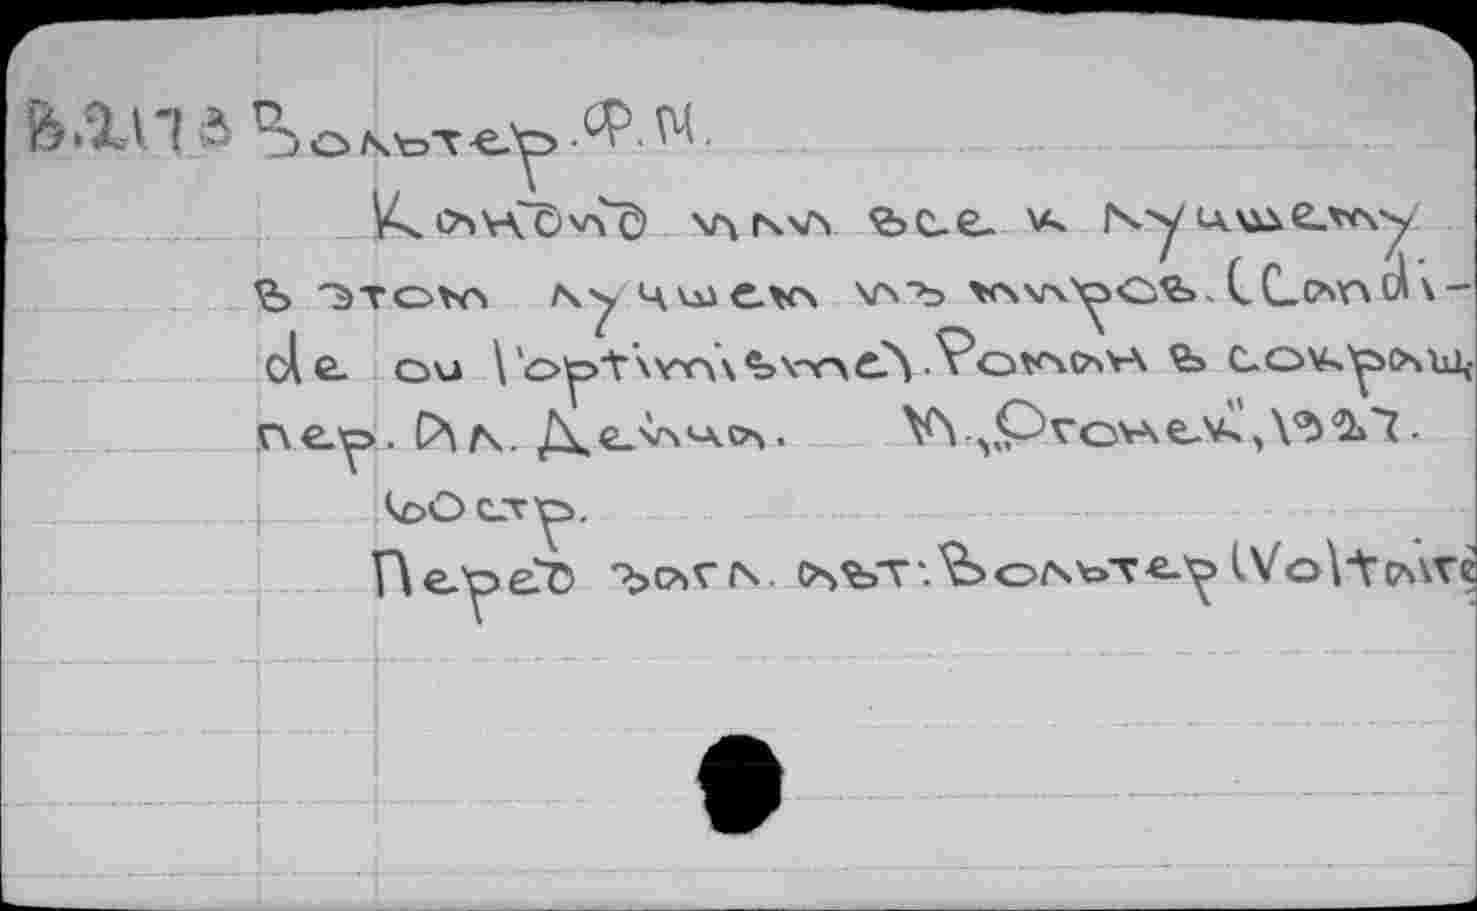 В.2173 Вольтер. Ф. М.
Кандид или все к лучшему
в этом лучшем из миров. (Candi-
de ou l'optimisme). Роман в сокращ.
пер. Ал. Дейча. М. „Огонек", 1927.
60 стр.
Перед загл. авт: Вольтер (Voltaire